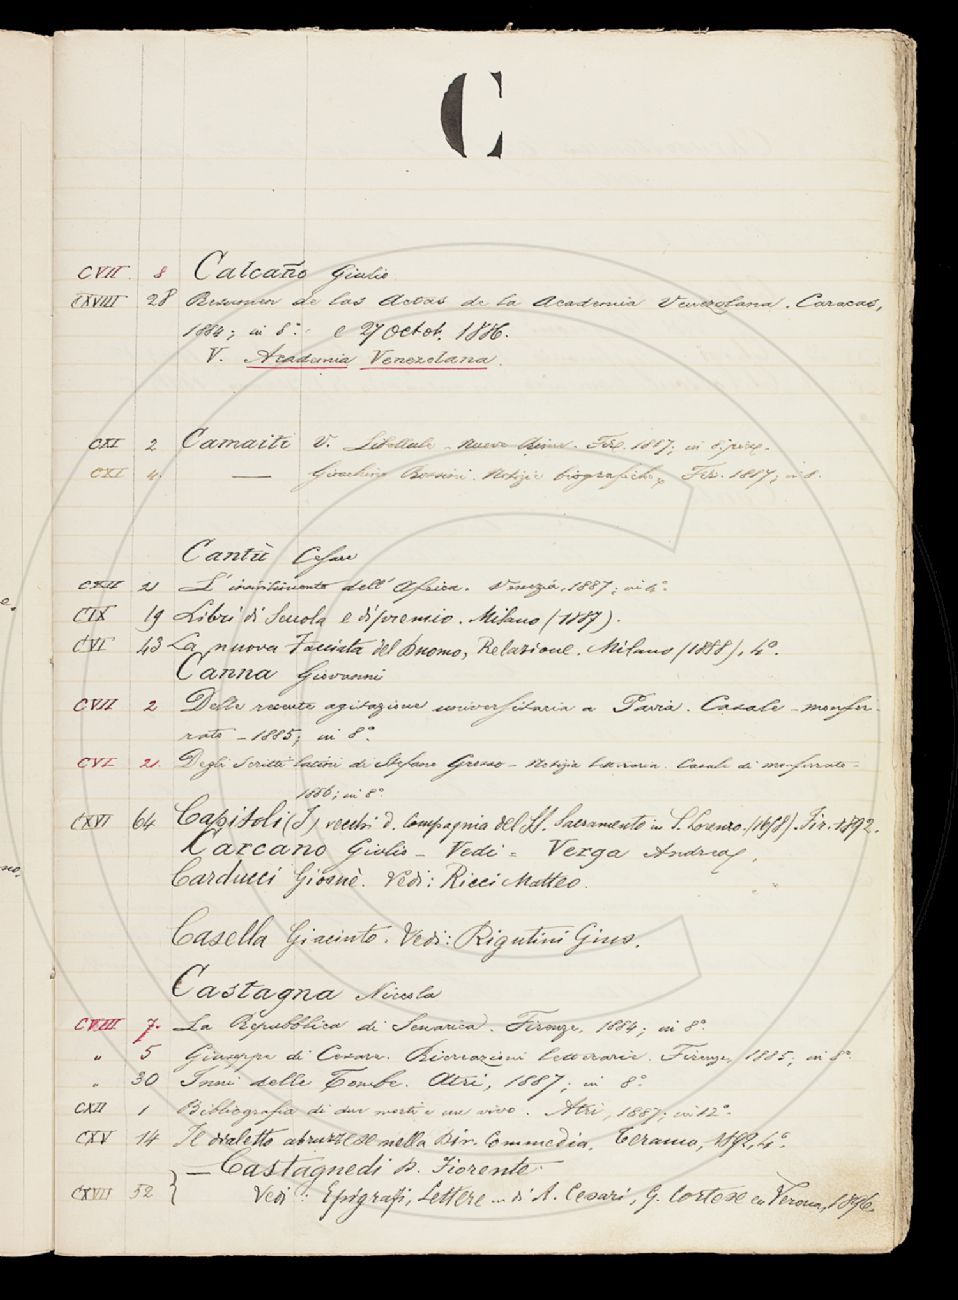 C
CVII 8 Calcaño Giulio
CXVIII 28 Resumen de las Actas de la Academia Venezolana. Caracas,
1884; in 8.° e 27 octot. 1886.
V. Academia Venezolana.
CXI 2 Camaiti V. Libellule - Nuove Rime. Fir. 1887; in 8.
CXI 4. — Gioachino Rossini. Notizie biografiche, Fir. 1887; in 8.
Cantù Cesare
CXII 21 L'incivilimento dell'Africa. Venezia, 1887; in 4.°
CIX 19 Libri di Scuola e di premio. Milano (1887).
CVI 43 La nuova Facciata del Duomo, Relazione. Milano (1888), 4.°
Canna Giovanni
CVII 2 Della recente agitazione universitaria a Pavia. Casale-monfer-
rato - 1885; in 8.°
CVI 21. Degli Scritti latini di Stefano Grosso - Notizia letteraria. Casale di monferrato -
1886; in 8.°
CXVI 64 Capitoli (I) vecchi d. Compagnia del SS. Sacramento in S. Lorenzo. (1658). Fir. 1892.
Carcano Giulio - Vedi = Verga Andrea,
Carducci Giosuè. Vedi: Ricci Matteo.
Casella Giacinto. Vedi: Rigutini Gius.
Castagna Nicola
CVIII 7. La Repubblica di Senarica. Firenze, 1884; in 8.°
" 5 Giuseppe di Cesare. Ricreazioni letterarie. Firenze, 1885; in 8.°
" 30 Inni delle Tombe. Atri, 1887; in 8.°
CXII 1 Bibliografia di due morti e un vivo. Atri, 1887; in 12.°
CXV 14 Il dialetto abruzzese nella Div. Commedia. Teramo, 1892, 4.°
— Castagnedi D. Fiorente
CXVII 52 } Vedi: Epigrafi, Lettere ... di A. Cesari, G. Cortese ec Verona, 1896.